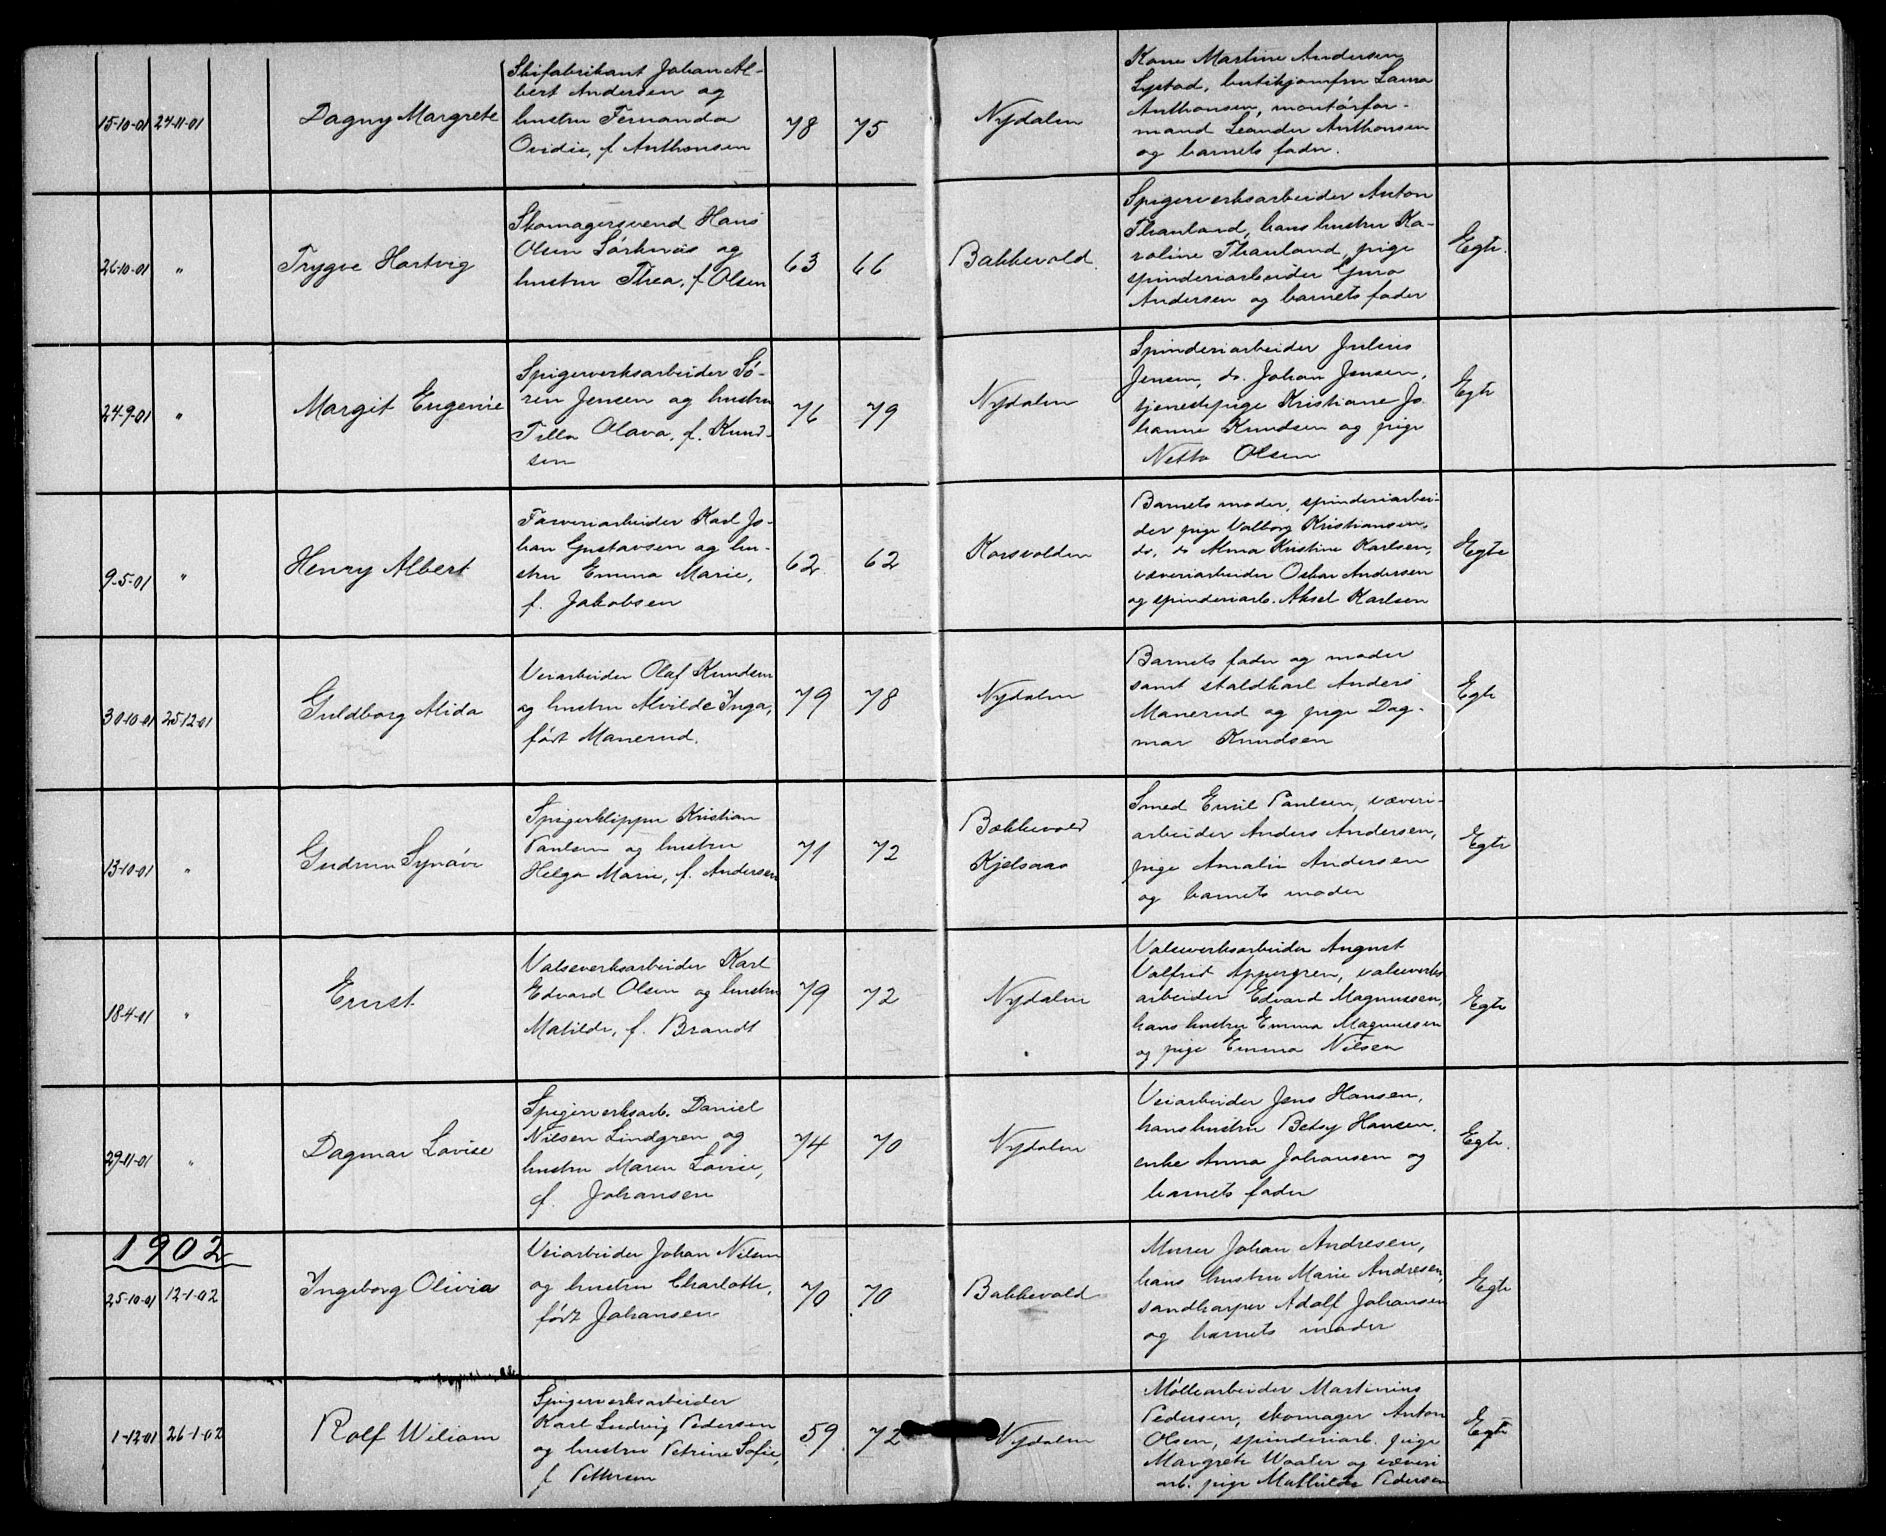 15-10-01 24-11-01
Dagny Margrete
Skifabrikant Johan Al-
bert Andersen og
hustru Fernanda
Ovidie, f. Anthonsen
78 75
Nydalen
Kone Martine Andersen
Lystad, butikjomfru Laura
Anthonsen, montørfor-
mand Leander Anthonsen
og barnets fader.
26-10-01 "
Trygve Hartvig
Skomagersvend Hans
Olsen Sørknæs og
hustru Thea, f. Olsen
63 66
Bakkevold.
Spigerverksarbeider Anton
Thanland, hans hustru Ka-
roline Thanland, pige
spinderiarbeider Gina
Andersen og barnets fader
Egte.
24-9-01 "
Margit Eugenie
Spigerverksarbeider Sø-
ren Jensen og hustru
Tilla Olava, f. Knud-
sen
76 79
Nydalen
Spinderiarbeider Julius
Jensen, do. Johan Jensen,
tjenestepige Kristiane Jo
hanne Knudsen og pige
Netta Olsen
Egte
9-5-01 "
Henry Albert
Farveriarbeider Karl Jo-
han Gustavsen og hu-
stru Emma Marie,
f. Jakobsen
62 62
Korsvolden
Barnets moder, spinderiarbei-
der pige Valborg Kristiansen,
do. do Alma Kristine Karlsen,
væveriarbeider Oskar Andersen
og spinderiarb. Aksel Karlsen
Egte
30-10-01 25-12-01
Guldborg Alida
Veiarbeider Olaf Knudsen
og hustru Alvilde Inga,
født Manerud.
79 78
Nydalen
Barnets fader og moder
samt staldkarl Anders
Manerud og pige Dag-
mar Knudsen
Egte
13-10-01 "
Gudrun Synøve
Spigerklipper Kristian
Paulsen og hustru
Helga Marie, f. Andersen
71 72
Bakkevold
Kjelsaas
Smed Emil Paulsen, væveri-
arbeider Anders Andersen,
pige Amalie Andersen
og barnets moder
Egte
18-4-01 "
Ernst
Valseverksarbeider Karl
Edvard Olsen og hustru
Matilde, f. Brandt
79 72
Nydalen
Valseverksarbeider August
Valfrid Appergren, valseverks
arbeider Edvard Magnussen,
hans hustru Emma Magnussen
og pige Emma Nilsen
Egte
29-11-01 "
Dagmar Lovise
Spigerverksarb. Daniel
Nilsen Lindgren og
hustru Maren Lovise,
f. Johansen
74 70
Nydalen
Veiarbeider Jens Hansen,
hans hustru Betsy Hansen,
enke Anna Johansen og
barnets fader
Egte.
1902
25-10-01 12-1-02
Ingeborg Olivia
Veiarbeider Johan Nilsen
og hustru Charlotte,
født Johansen
70 70
Bakkevold
Murer Johan Andresen,
hans hustru Marie Andresen,
sandharper Adolf Johansen
og barnets moder
Egte
1-12-01 26-1-02
Rolf Wiliam
Spigerverksarbeider
Karl Ludvig Pedersen
og hustru Petrine Sofie,
f. Pettersen
59 72
Nydalen
Møllearbeider Martinius
Pedersen, skomager Anton
Olsen, spinderiarb. pige
Margrete Waaler og væveri
arb. pige Mathilde Pedersen
Egte